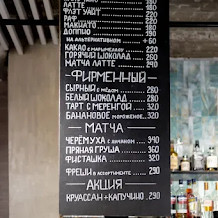 ЛАТТЕ
ФЛЭТ УАЙТ 220
РАФ 260
МАКИАТО 180
ДОППИО 190
НА АЛЬТЕРНАТИВНОМ + 60
КАКАО С МАРШМЕЛЛОУ 220
ГОРЯЧИЙ ШОКОЛАД 260
МАТЧА ЛАТТЕ 290
ФИРМЕННЫЙ
СЫРНЫЙ С МЁДОМ 280
БЕЛЫЙ ШОКОЛАД 280
ТАРТ С МЕРЕНГОЙ 320
БАНАНОВОЕ МОРОЖЕНОЕ 320
МАТЧА
ЧЕРЁМУХА 340
ПРЯНАЯ ГРУША 360
ФИСТАШКА 320
ФРЕШИ В АССОРТИМЕНТЕ 290
АКЦИЯ
КРУАССАН + КАПУЧИНО 290